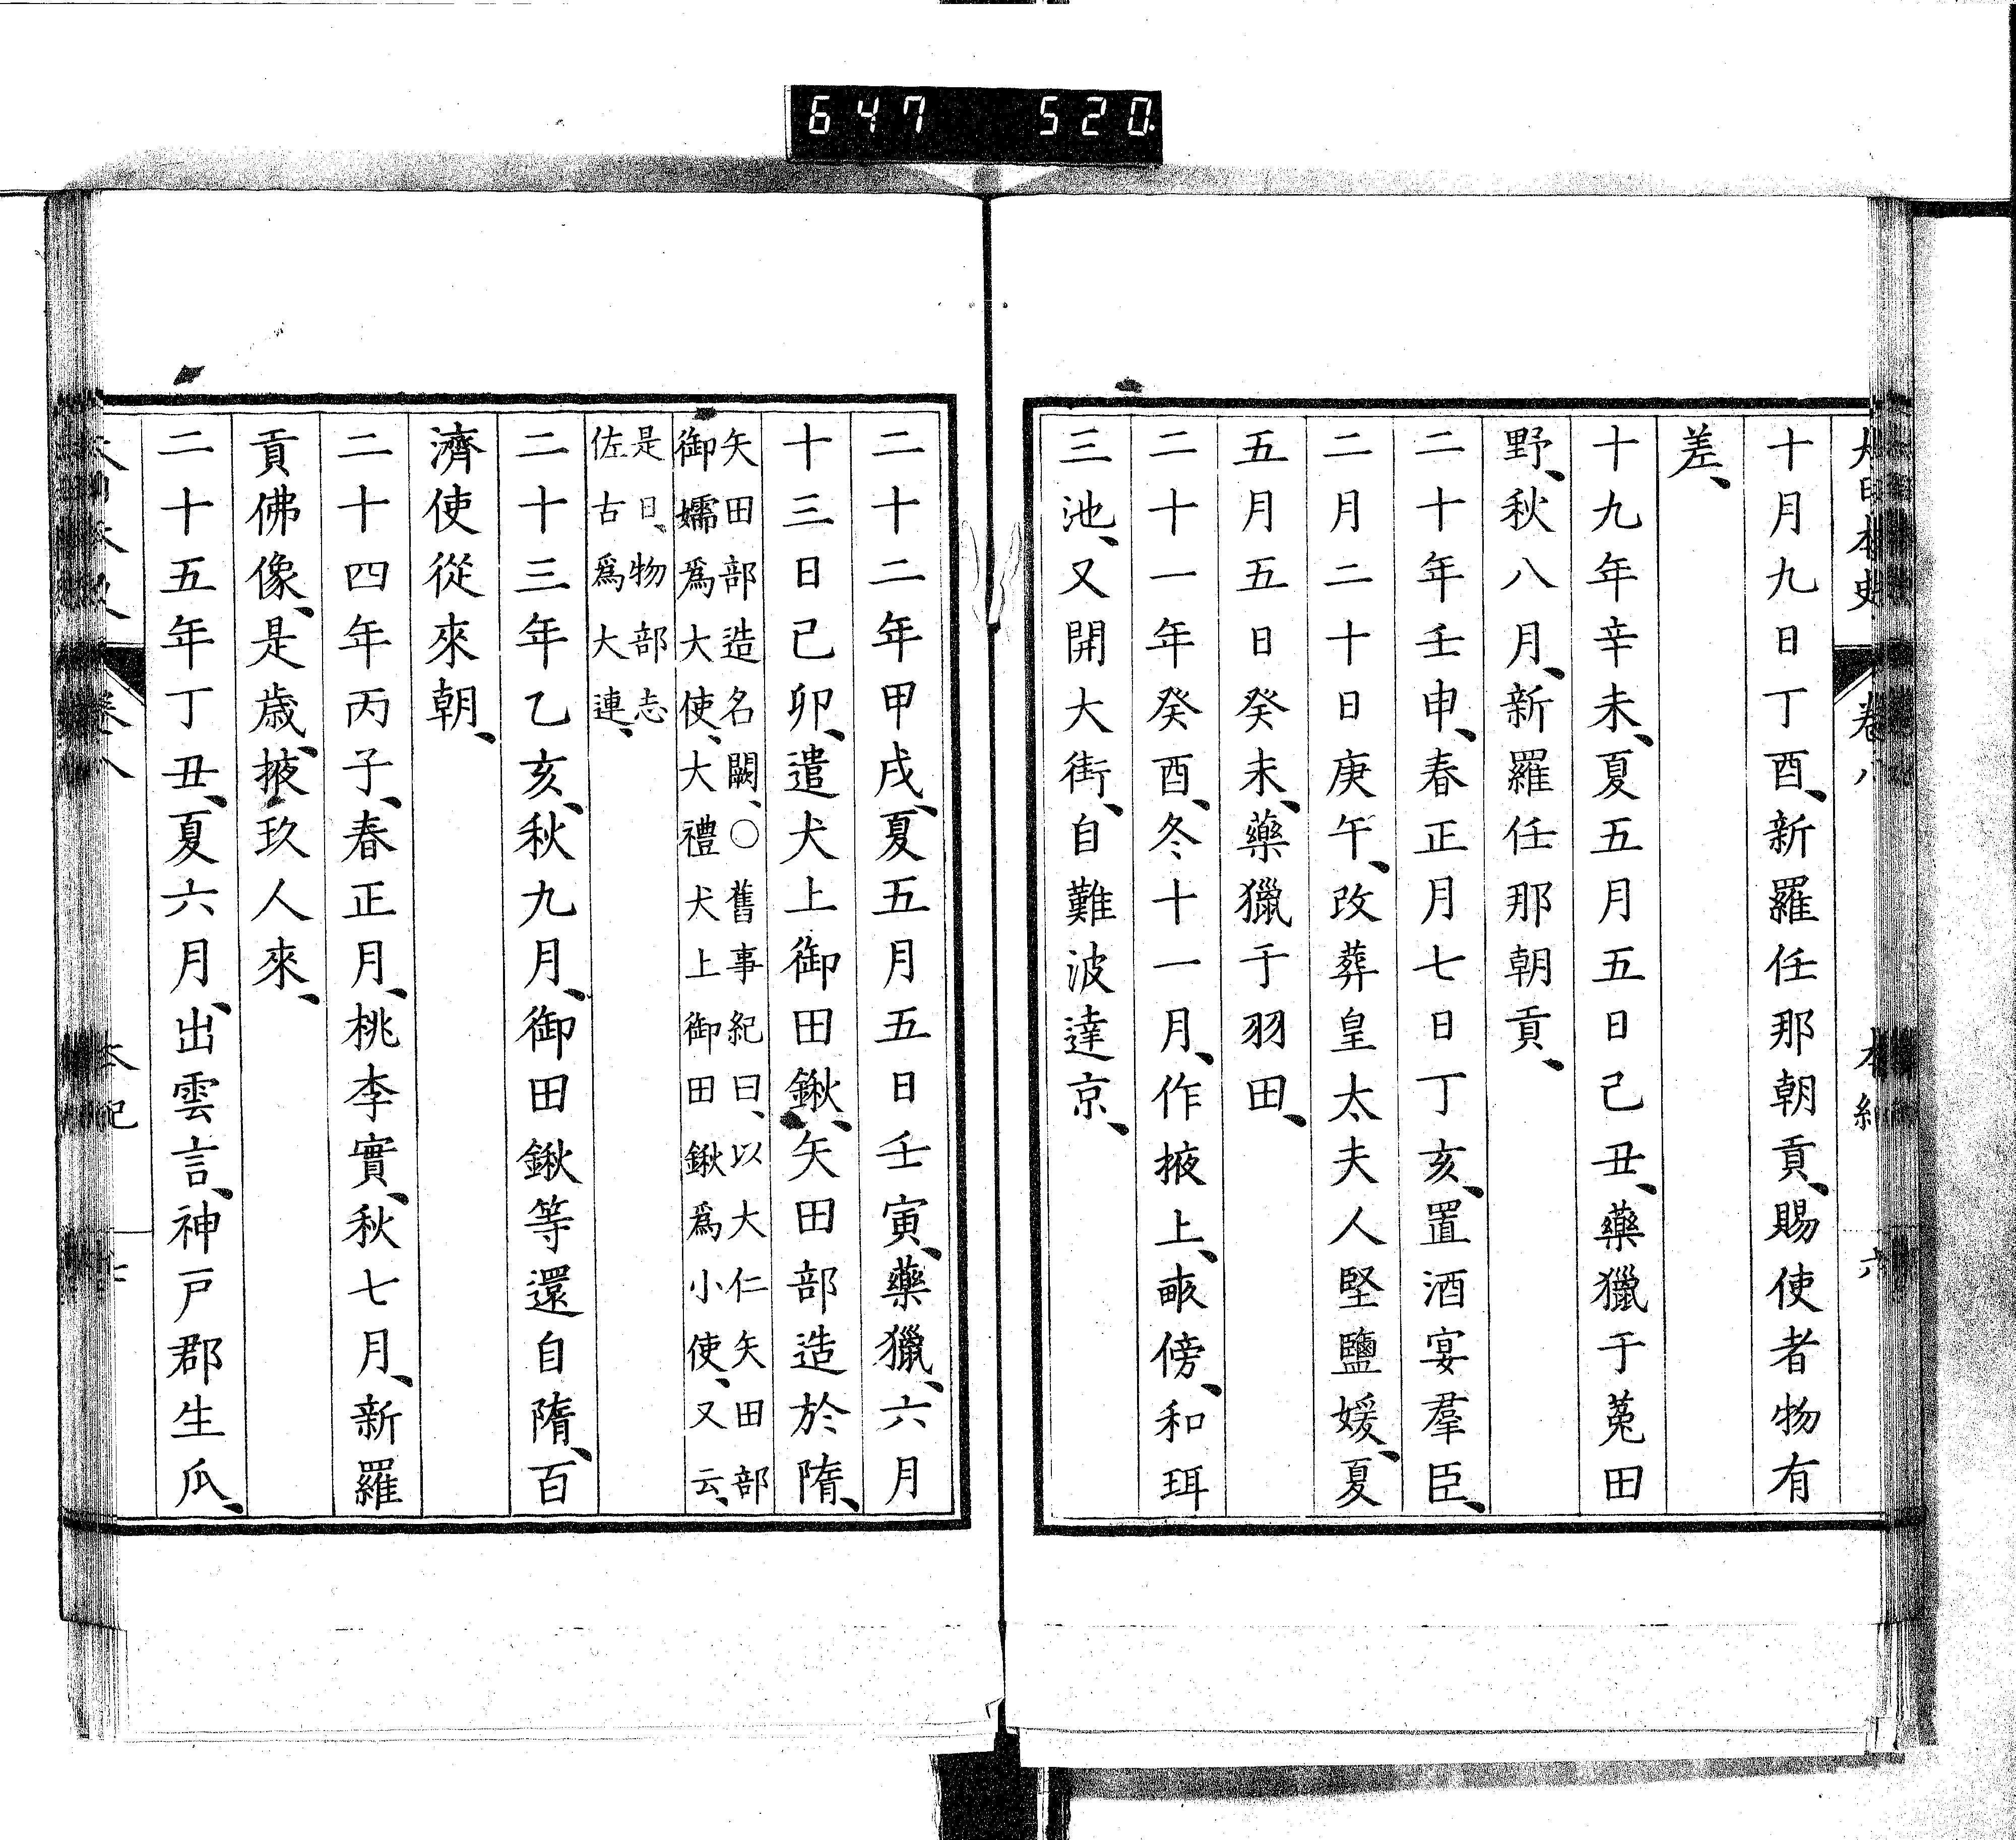 647 520
大日本史 卷八 本紀 六
十月九日丁酉、新羅任那朝貢、賜使者物有
差、
十九年辛未、夏五月五日己丑、藥獵于菟田
野、秋八月、新羅任那朝貢、
二十年壬申、春正月七日丁亥、置酒宴羣臣、
二月二十日庚午、改葬皇太夫人堅鹽媛、夏
五月五日癸未、藥獵于羽田、
二十一年癸酉、冬十一月、作掖上、畝傍、和珥
三池、又開大街、自難波達京、
二十二年甲戌、夏五月五日壬寅、藥獵、六月
十三日己卯、遣犬上御田鍬、矢田部造於隋、
矢田部造名闕、○舊事紀曰、以大仁矢田部
御嬬爲大使、大禮犬上御田鍬爲小使、又云、
是日、物部志
佐古爲大連、
二十三年乙亥、秋九月、御田鍬等還自隋、百
濟使從來朝、
二十四年丙子、春正月、桃李實、秋七月、新羅
貢佛像、是歲、掖玖人來、
二十五年丁丑、夏六月、出雲言、神戶郡生瓜、
卷八 本紀